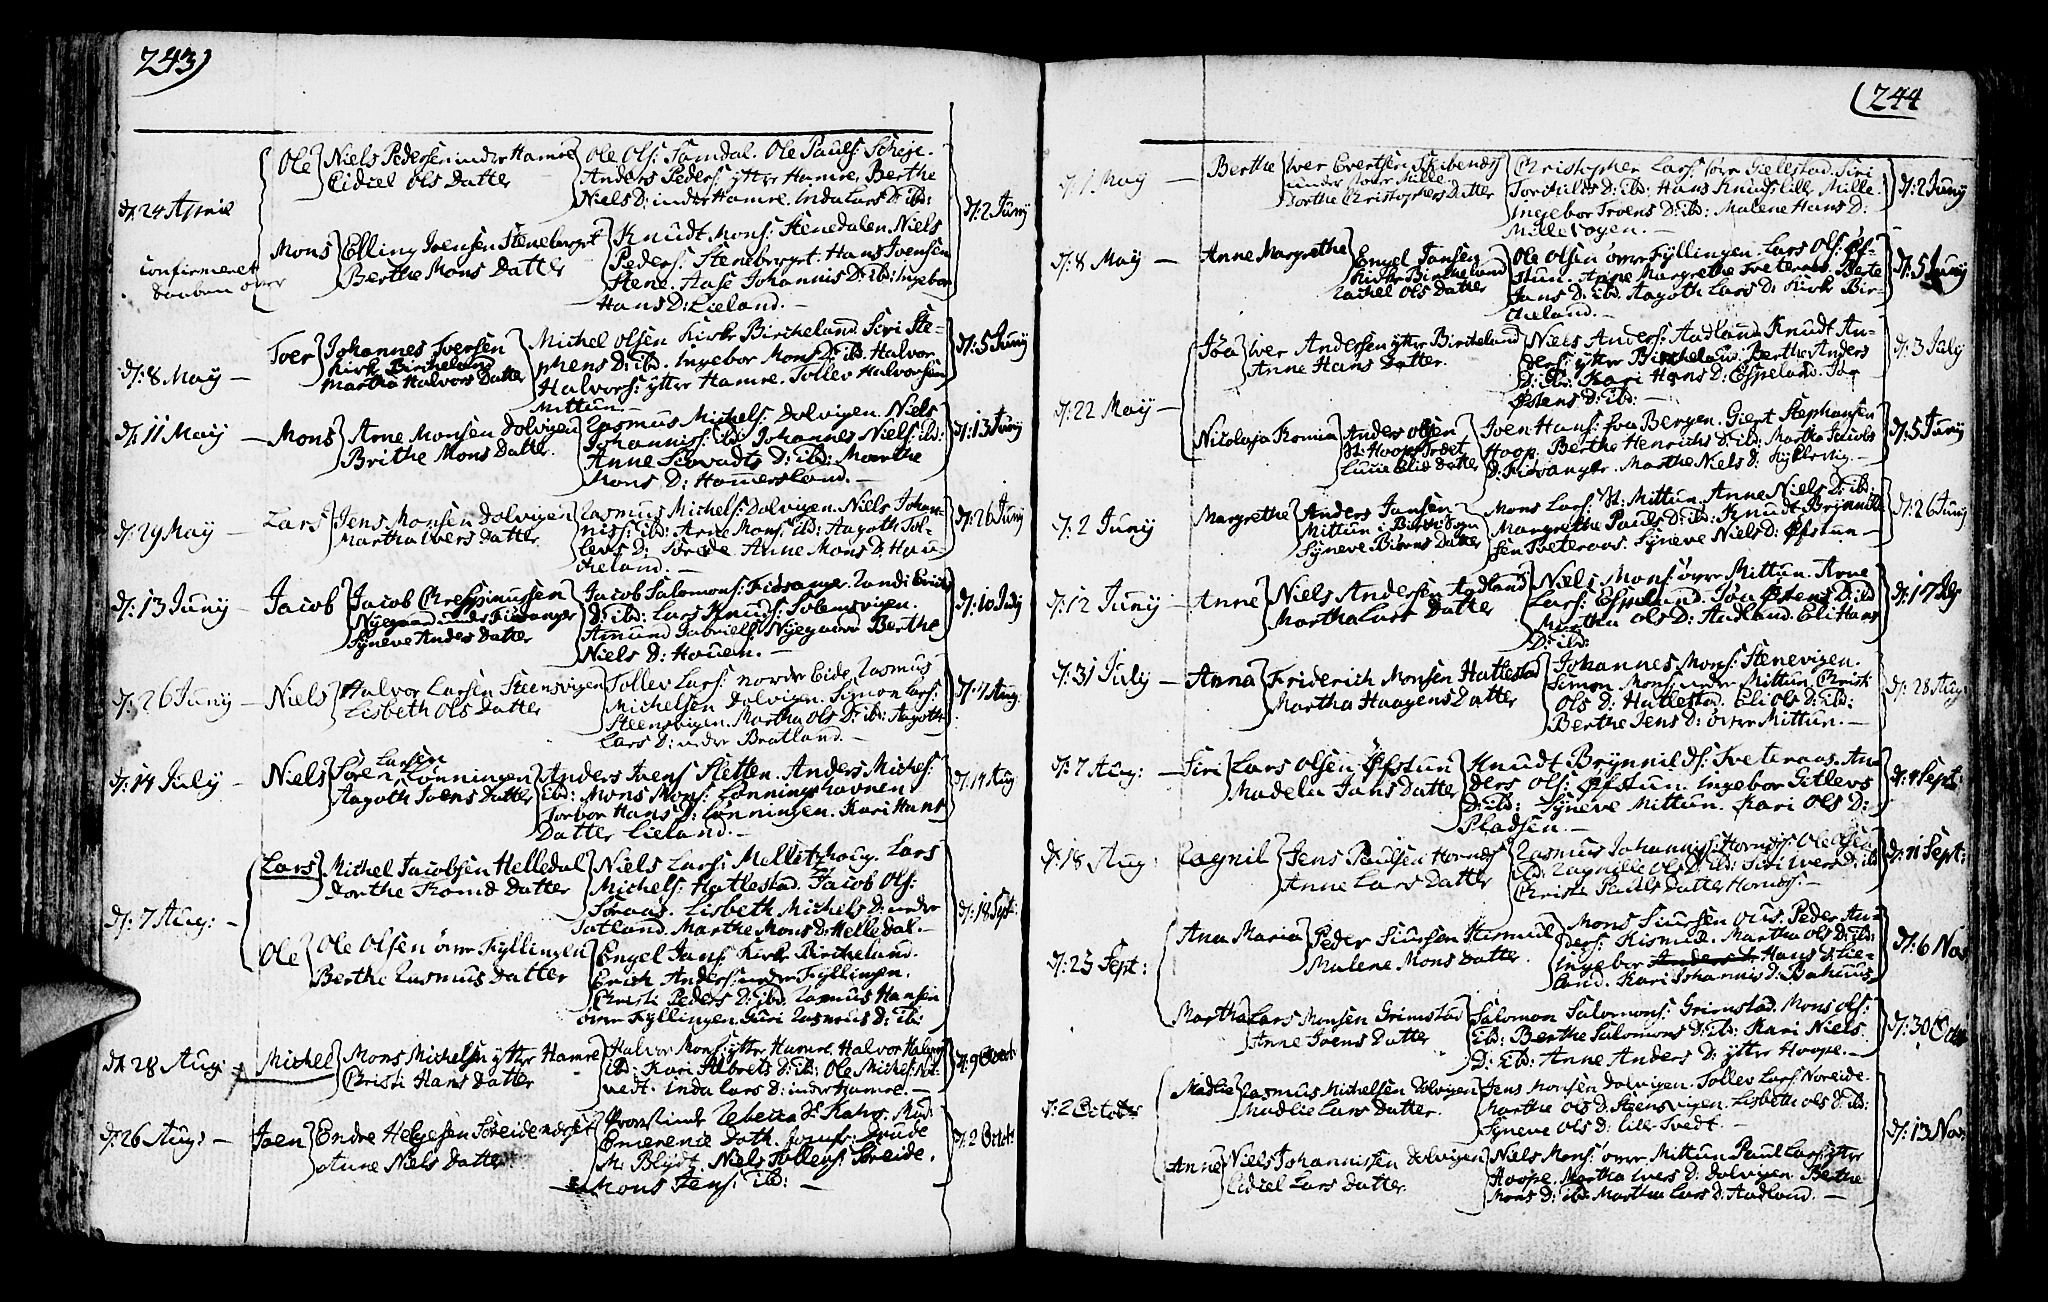 243)
d/: 24 April
Confirmeret
Daaben over
Ole
Niels Pedersen indre Hamre
Eidiel Ols Datter
Ole Ols: Samdal. Ole Pauls:
Anders Peders: ytter Hamre, Berthe
Niels D: indre Hamre. Inda Lars D: ibd:
d/: 2 Juny
Mons
Elling Joensen Steneberget
Berthe Mons Datter
Knudt Mons: Stenedalen Niels
Peders: Steneberget. Hans Joensen
Stene. Aase Johannis D: ibd: Ingebor
Hans D: Lieland. —
d/: 8 May —
Iver
Johannes Iversen
Kirke Bircheland
Martha Halvors Datter
Michel Olsen Kirke Bircheland. Siri Ste-
phens D: ibd. Ingebor Mons D: ibd. Halvor
Halvors: ytter Hamre. Tollev Halvorsen
Mittun. —
d/: 5 Juny
d/: 11 May —
Mons
Arne Monsen Dolvigen
Brithe Mons Datter
Rasmus Michels: Dolvigen. Niels
Johanniss: ibd: Johannes Niels: ibd:
Anne Sievadts D: ibd: Marthe
Mons D: Hamersland. —
d/: 13 Juny
d/: 29 May —
Lars
Jens Monsen Dolvigen
Martha Ivers Datter
Rasmus Michels: Dolvigen. Niels Johan-
niss: ibd: Arne Mons: ibd: Aagoth Tol-
levs D: Anne Mons D: Hau
cheland. —
d/: 26 Juny
d/: 13 Juny —
Jacob
Jacob Chrespinussen
Nyegaard under Fissanger
Syneve Anders Datter
Jacob Salomons: Fissanger. Randi Erichs
D: ibd: Lars Knuds: Solemsvigen.
Amund Gabriels: Nyegaard Berthe
Niels D: Houen. —
d/: 10 July
d/: 26 Juny —
Niels
Halvor Larsen Steensvigen
Lisbeth Ols Datter
Tollev Lars: nordre Eide Rasmus
Michelsen Dolvigen. Simon Lars:
Steensvigen. Martha Ols D: ibd: Aagoth
Lars D: indre Bratland. —
d/: 7 Aug.
d/: 14 July —
Niels
Larsen
Søren Lønningen
Aagoth Joens Datter
Anders Joens: Sletten. Anders Michels:
ibd: Mons Mons: Lønningshavnen
Torbor Hans D: Lønningen. Kari Hans
Datter Lieland. —
d/: 14 Aug
d/: 7 Aug: —
Lars
Michel Jacobsen Helledal
Dorthe Datter
Niels Lars: Melletzhoug. Lars
Michels: Hatlestad. Jacob Ols:
Søraas. Lisbeth Michels D: nedre
Totland. Marthe Mons D: Helledal. —
d/: 18 Sept:
Ole
Ole Olsen øvre Fyllingen
Berthe Rasmus Datter
Engel Jans: Kirke Bircheland.
Erich Anders: nedre Fyllingen.
Christi Peders D: ibd. Rasmus Hansen
øvre Fyllingen. Guri Rasmus D: ib:
d/: 28 Aug: —
Michel
Mons Michelsen ytter Hamre
Christi Hans Datter
Halvor Mons: ytter Hamre. Halvor Halvors:
ibd: Kari Helbrets D: ibd: Ole Michels:
tvedt. Inda Lars D: indre Hamre. —
d/: 9 Octobr
d/: 26 Aug: —
Joen
Endre Helgesen Søreidenæset
Anne Niels Datter
Provstinde Rebecca S: Kahrs. Mad:
Emerence Dath. Jomfr: Drude
M: Blydt. Niels Tollefs: Søreide.
Mons Jens: ibd: —
d/: 2 Octobr
(244
d/: 1 May —
Berthe
Iver Evertsen Skibenæs
under Store Mille
Dorthe Christophers Datter
Christopher Lars: øvre Gielestad. Siri
Torchilds D: ibd: Hans Knuds: lille Mille.
Ingebor Troens D: ibd: Malene Hans D:
Millevogen. —
d/: 2 Juny
d/: 8 May —
Anne Margrethe
Engel Jansen
Kirke Bircheland
Rachel Ols Datter
Ole Olsen øvre Fyllingen. Lars Ols: Øf-
stun. Anne Margrethe Tveteraas. Berte
Jans D: ibd. Aagoth Lars D: Kirke Bir-
cheland. —
d/: 5 Juny
d/: 22 May —
Joa
Iver Andersen ytter Bircheland
Anne Hans Datter.
Niels Anders: Aadland. Knudt An-
ders: ytter Bircheland. Berthe Anders
D: ibd: Kari Hans D: Espeland. Joa
Østens D: ibd: —
d/: 3 July
Nicolaja Romia
Anders Olsen
St: Hoop Træet
Lucie Elis Datter
Joen Hans: fra Bergen. Giert Stephansen
Hoop. Berthe Henrichs D: ibd: Martha Jacobs
D: Fissanger. Marthe Niels D: —
d/: 5 Juny
d/: 2 Juny
Margrethe
Anders Jansen
Mittun i
Syneve Biørns Datter
Mons Lars: St: Mittun. Anne Niels D: ibd:
Margrethe Pauls D: ibd: Knudt Brynnild
sen Tveteraas. Syneve Niels D: Øfstun —
d/: 26 Juny
d/: 12 Juny —
Anne
Niels Andersen Aadland
Martha Lars Datter
Niels Mons: øvre Mittun. Arne
Lars: Espeland. Joa Østens D: ibd
Martha Ols D: Aadland. Eli Hans
D: ibd:
d/: 17 July
d/: 31 July —
Anna
Friderich Monsen Hatlestad
Martha Haagens Datter
Johannes Mons: Stenevigen.
Simon Mons: nedre Mittun Christi
Ols D: Hatlestad. Eli Ols D: ibd:
Berthe Jens D: øvre Mittun. —
d/: 28 Aug:
d/: 7 Aug: —
Siri
Lars Olsen Øfstun
Madela Jans Datter
Knudt Brynnild s: Tveteraas. An-
ders Ols: Øfstun. Ingebor Gitlevs
D: ibd: Syneve Mittun. Kari Ols D:
Pladsen. —
Sept:
d/: 18 Aug:
Ragnil
Jens Paulsen Hornæs
Anne Lars Datter
Rasmus Johannis: Hornæs. Ole Olsen
ibd. Ragnille Ols D: ibd: Siri Ivers D: ibd
Christi Pauls Datter Hornæs. —
d/: 11 Sept:
d/: 25 Sept:
Ana Maria
Peder Siursen Kismul
Malene Mons Datter.
Mons Siursen Ous. Peder An-
ders: Kismul. Martha Ols D: ibd:
Ingebor Hans D: Lie-
land. Kari Johannis D: Bahuus
d/: 6 Nov
Martha
Lars Monsen Grimstad
Anne Joens Datter
Salomon Salomons: Grimstad. Mons Ols:
ibd: Berthe Salomons D: ibd: Kari Niels
D: ibd: Anne Anders D: ytter Hoope. —
d/: 30 Octbr
d/: 2 Octobr
Madlie
Rasmus Michelsen Dolvigen
Madlie Lars Datter.
Jens Monsen Dolvigen. Tollev Lars: Noreide.
Marthe Ols D: Steensvigen. Lisbeth Ols D: ibd:
Syneve Ols D: lille Tvedt. —
d/: 13 Nov
Anne
Niels Johannissen Dolvigen
Eidiel Lars Datter
Niels Mons: øvre Mittun Paul Lars: ytter
Hoope. Martha Ivers D: Dolvigen. Berthe
Mons D: ibd. Martha Lars D: Aadland. —